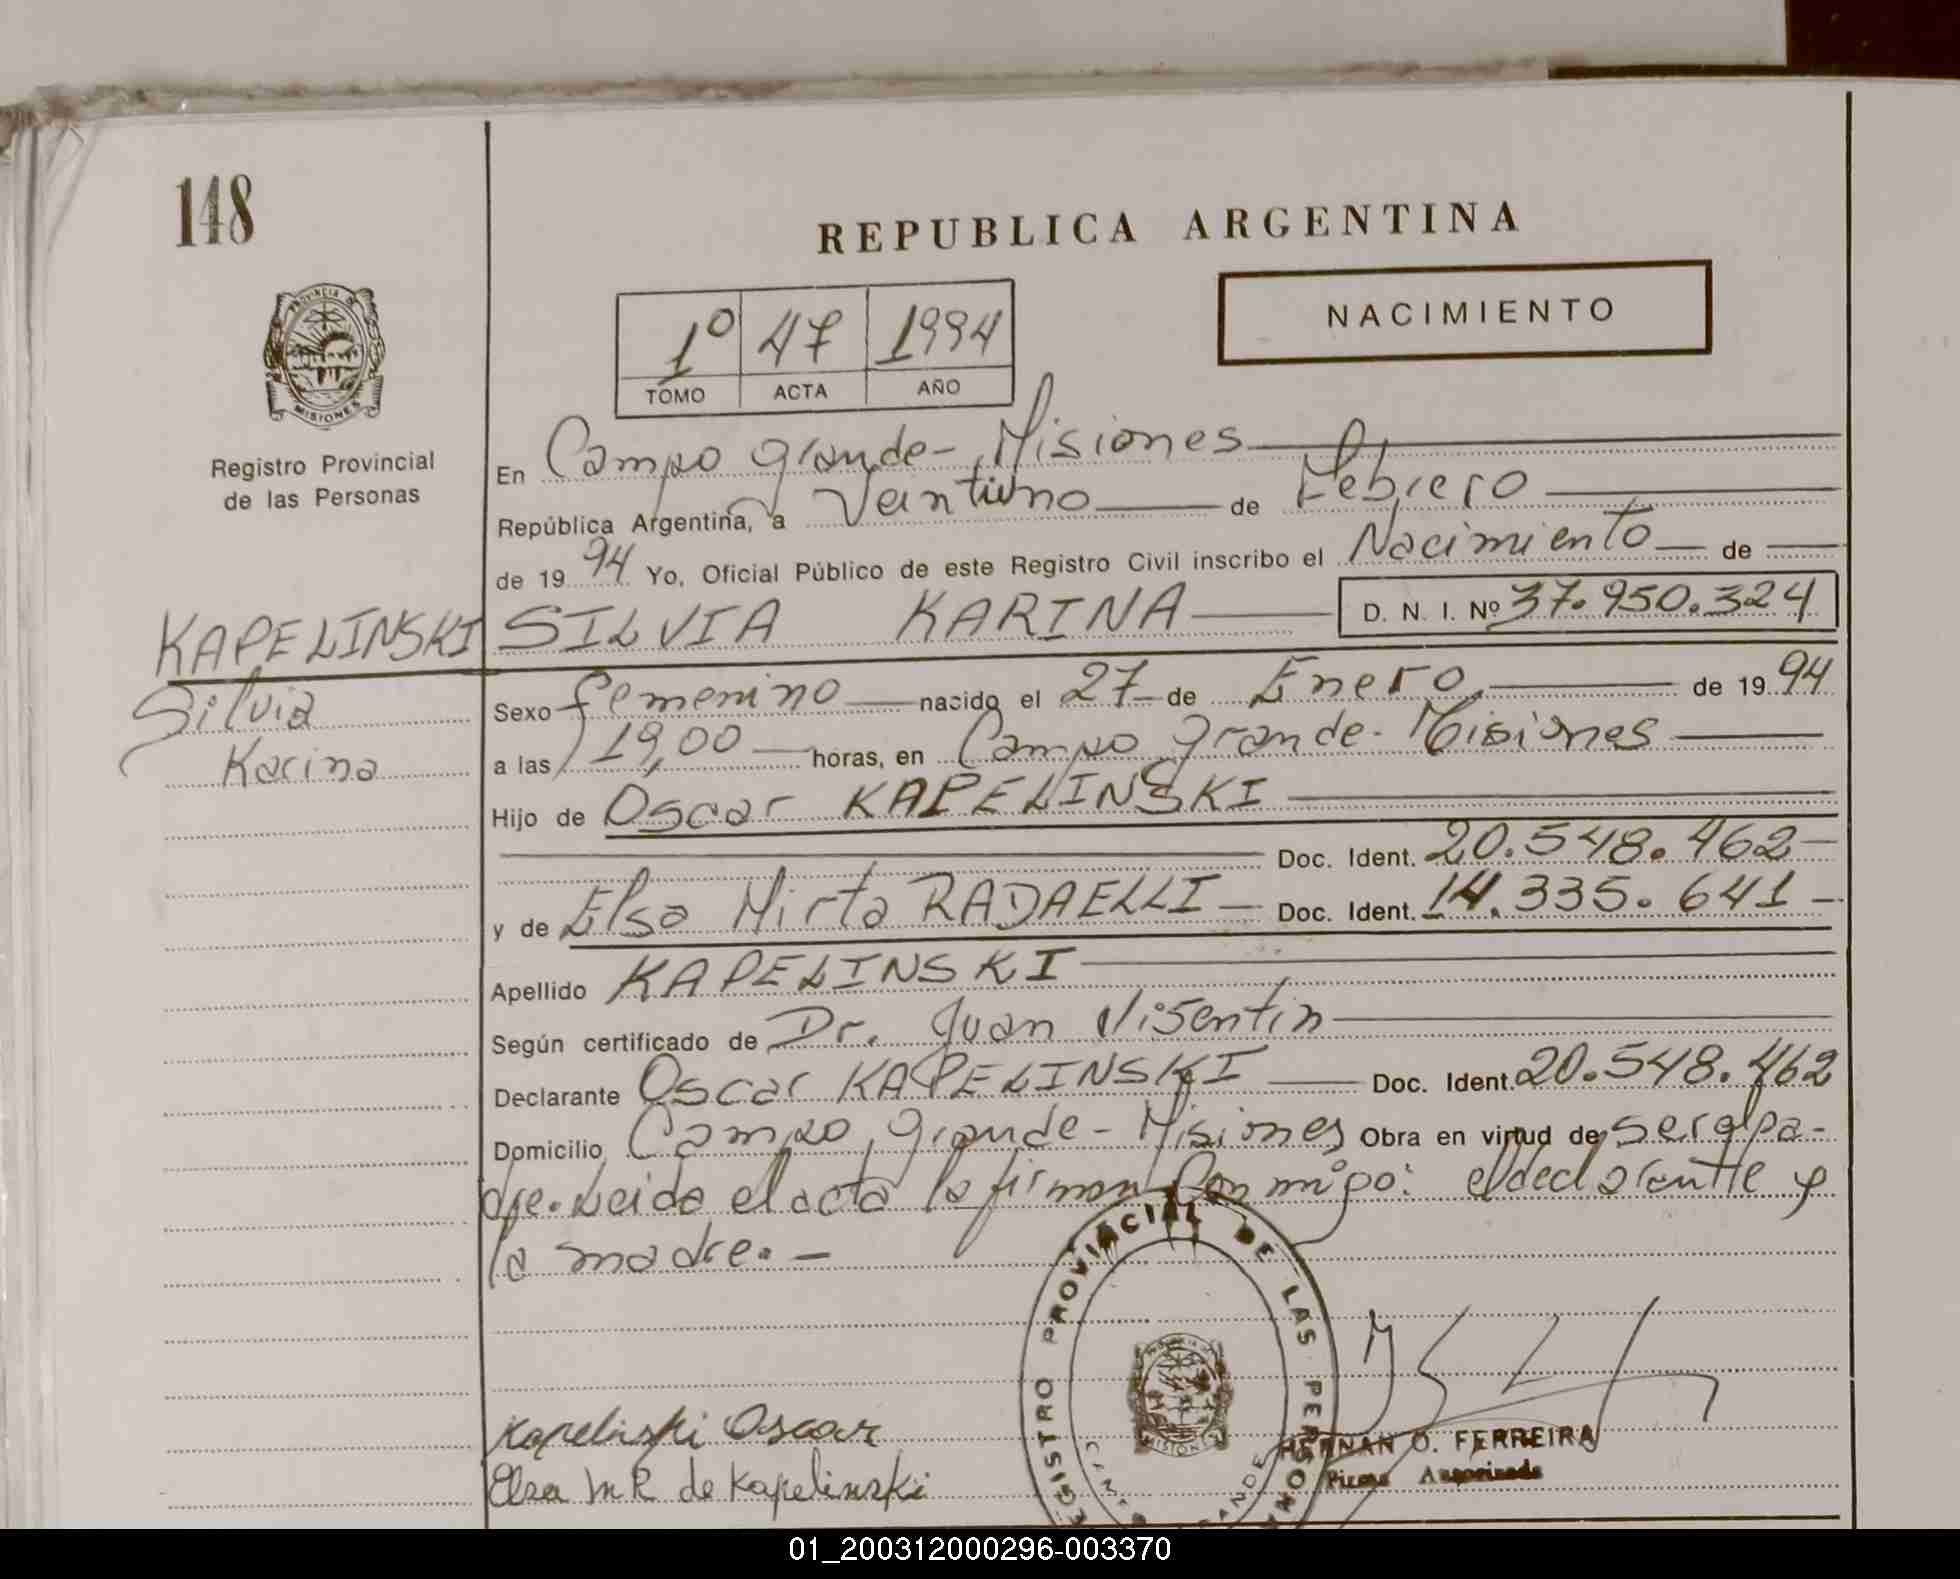 148
REPUBLICA ARGENTINA
NACIMIENTO
1º 47 1994
TOMO ACTA AÑO
PROVINCIA DE
MISIONES
Registro Provincial
de las Personas
En Campo Grande - Misiones
República Argentina, a Veintiuno de Febrero
de 1994 Yo, Oficial Público de este Registro Civil inscribo el Nacimiento de
KAPELINSKI SILVIA KARINA D. N. I. Nº 37.950.324
Silvia
Karina
Sexo femenino nacido el 27 de Enero de 1994
a las 19,00 horas, en Campo Grande - Misiones
Hijo de Oscar KAPELINSKI
Doc. Ident. 20.548.462
y de Elsa Mirta RADAELLI Doc. Ident. 14.335.641
Apellido KAPELINSKI
Según certificado de Dr. Juan Visentin
Declarante Oscar KAPELINSKI Doc. Ident. 20.548.462
Domicilio Campo Grande - Misiones Obra en virtud de ser el pa-
dre. Leida el acta la firman conmigo: el declarante y
la madre. -
REGISTRO PROVINCIAL DE LAS PERSON
MISIONES
Kapelinski Oscar
Elsa M R de Kapelinski
HERNAN O. FERREIRA
Firma Autorizada
01_200312000296-003370